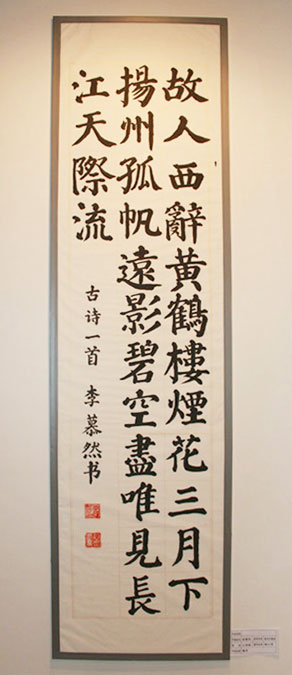 故人西辭黃鶴樓煙花三月下
揚州孤帆遠影碧空盡唯見長
江天際流
古诗一首 李慕然书